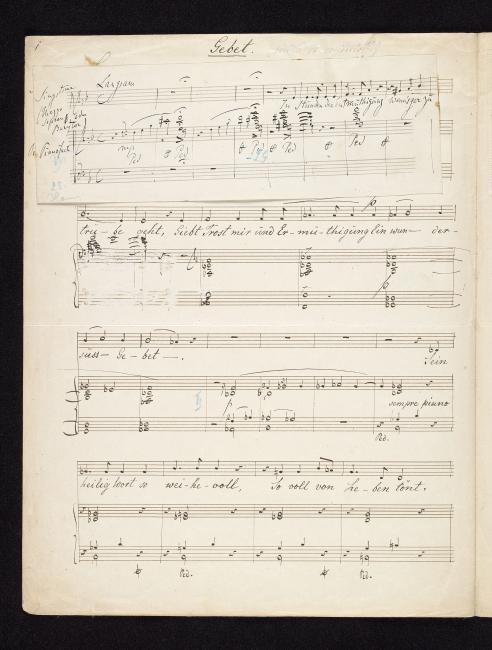 1
Gebet.
Langsam
Singstimme
In Stunden der Entmuthigung wenn's gar zu
Ped Ped Ped Ped
trü-be geht, Giebt Trost mir und Er-mu-thigung Ein wun- der-
süss- Ge-bet-.
Sein
p
sempre piano
Ped.
heilig Wort so wei-he-voll, So voll von Le-ben tönt.
Ped. Ped.